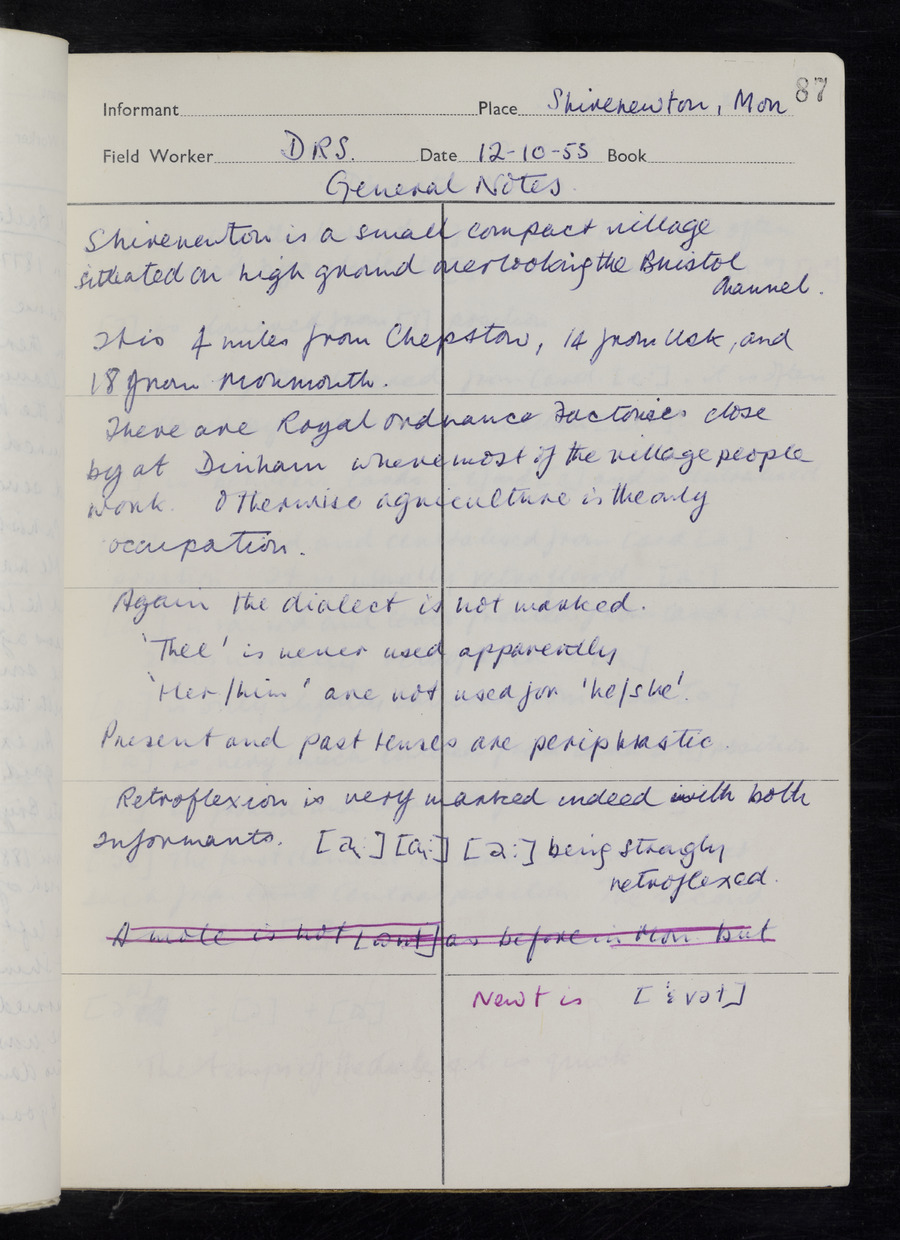 87
Informant Place Shirenewton, Mon
Field Worker DRS. Date 12-10-55 Book
General Notes.
Shirenewton is a small compact village
situated on high ground overlooking the Bristol
Channel.
It is 4 miles from Chepstow, 14 from Usk, and
18 from Monmouth.
There are Royal Ordnance Factories close
by at Dinham where most of the village people
work. Otherwise agriculture is the only
occupation.
Again the dialect is not marked.
'Thee' is never used apparently
'Her/him' are not used for 'he/she'.
Present and past tenses are periphrastic.
Retroflexion is very marked indeed with both
informants. being strongly
retroflexed.
A mole is not as before in Mon but
Newt is